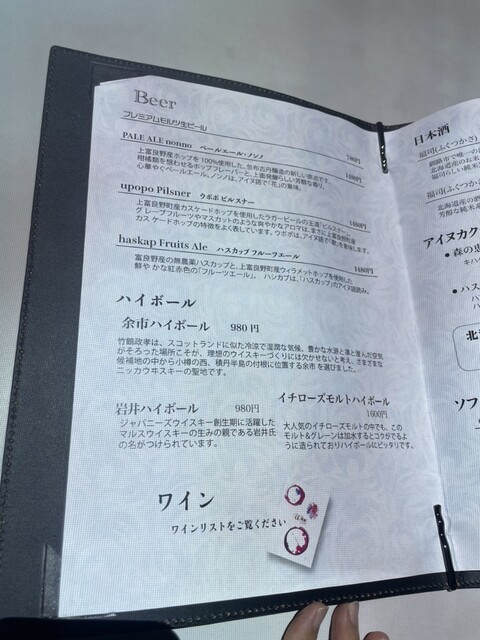 Beer
プレミアムモルツ生ビール
780円
PALE ALE nonno ペールエール・ノンノ
1480円
上富良野産ホップを100%使用した、忽布古丹醸造の新しい原点です。
柑橘類を想わせるホップフレーバーと、上面発酵らしい芳醇な香り。
心華やぐペールエール。ノンノは、アイヌ語で「花」の意味。
upopo Pilsner ウポポ ピルスナー
1480円
上富良野町産カスケードホップを使用したラガービールの王道「ピルスナー」
グレープフルーツやマスカットのような爽やかなアロマは、まさに上富良野産
カスケードホップの特徴をよく表しています。ウポポは、アイヌ語で「歌」を意味します。
haskap Fruits Ale ハスカップ フルーツエール
1480円
富良野産の無農薬ハスカップと、上富良野町産ウィラメットホップを使用した
鮮やかな紅赤色の「フルーツエール」。 ハシカプは、「ハスカップ」のアイヌ語読み。
ハイボール
余市ハイボール 980円
竹鶴政孝は、スコットランドに似た冷涼で湿潤な気候、豊かな水源と凛と澄んだ空気
がそろった場所こそが、理想のウイスキーづくりには欠かせないと考え、さまざまな
候補地の中から小樽の西、積丹半島の付根に位置する余市を選びました。
ニッカウヰスキーの聖地です。
岩井ハイボール 980円
ジャパニーズウイスキー創生期に活躍した
マルスウイスキーの生みの親である岩井氏
の名がつけられています。
イチローズモルトハイボール
1600円
大人気のイチローズモルトの中でも、この
モルト&グレーンは加水するとコクがでるよ
うに造られておりハイボールにピッタリです。
ワイン
ワインリストをご覧ください
Wine
日本酒
福司(ふくつかさ)
釧路市で唯一の
北海道産のお米
福司らしい純米
福司(ふくつか
北海道産の酒
芳醇な純米
アイヌカク
● 森の恵
キハ
● ハス
ハ
北
ソフ